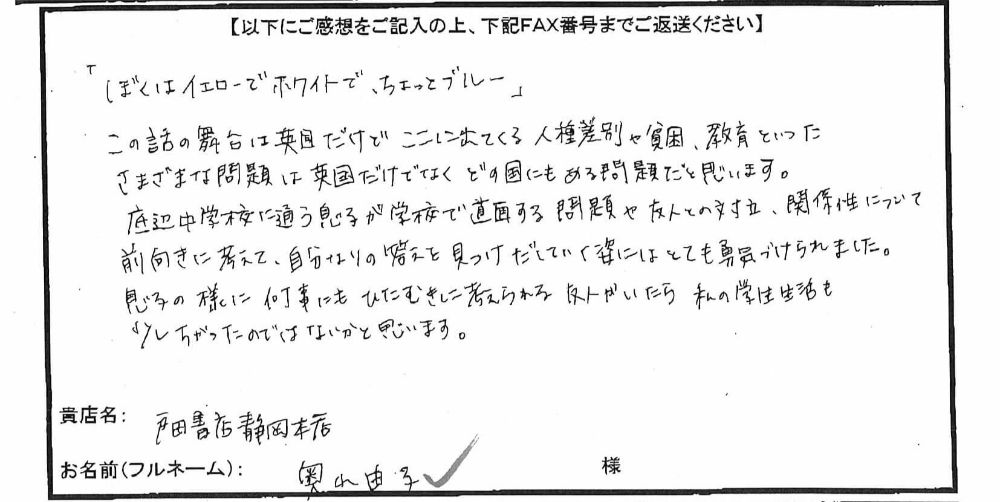 【以下にご感想をご記入の上、下記FAX番号までご返送ください】
「ぼくはイエローでホワイトで、ちょっとブルー」
この話の舞台は英国だけど ここに出てくる 人種差別や貧困、教育といった
さまざまな問題は英国だけでなく どの国にもある問題だと思います。
底辺中学校に通う息子が学校で直面する 問題や友人との対立、関係性について
前向きに考えて、自分なりの答えを見つけだしていく姿にはとても勇気づけられました。
息子の様に何事にもひたむきに考えられる 友人がいたら 私の学生生活も
少しちがったのではないかと思います。
貴店名: 戸田書店静岡本店
お名前(フルネーム): 奥山由子 様